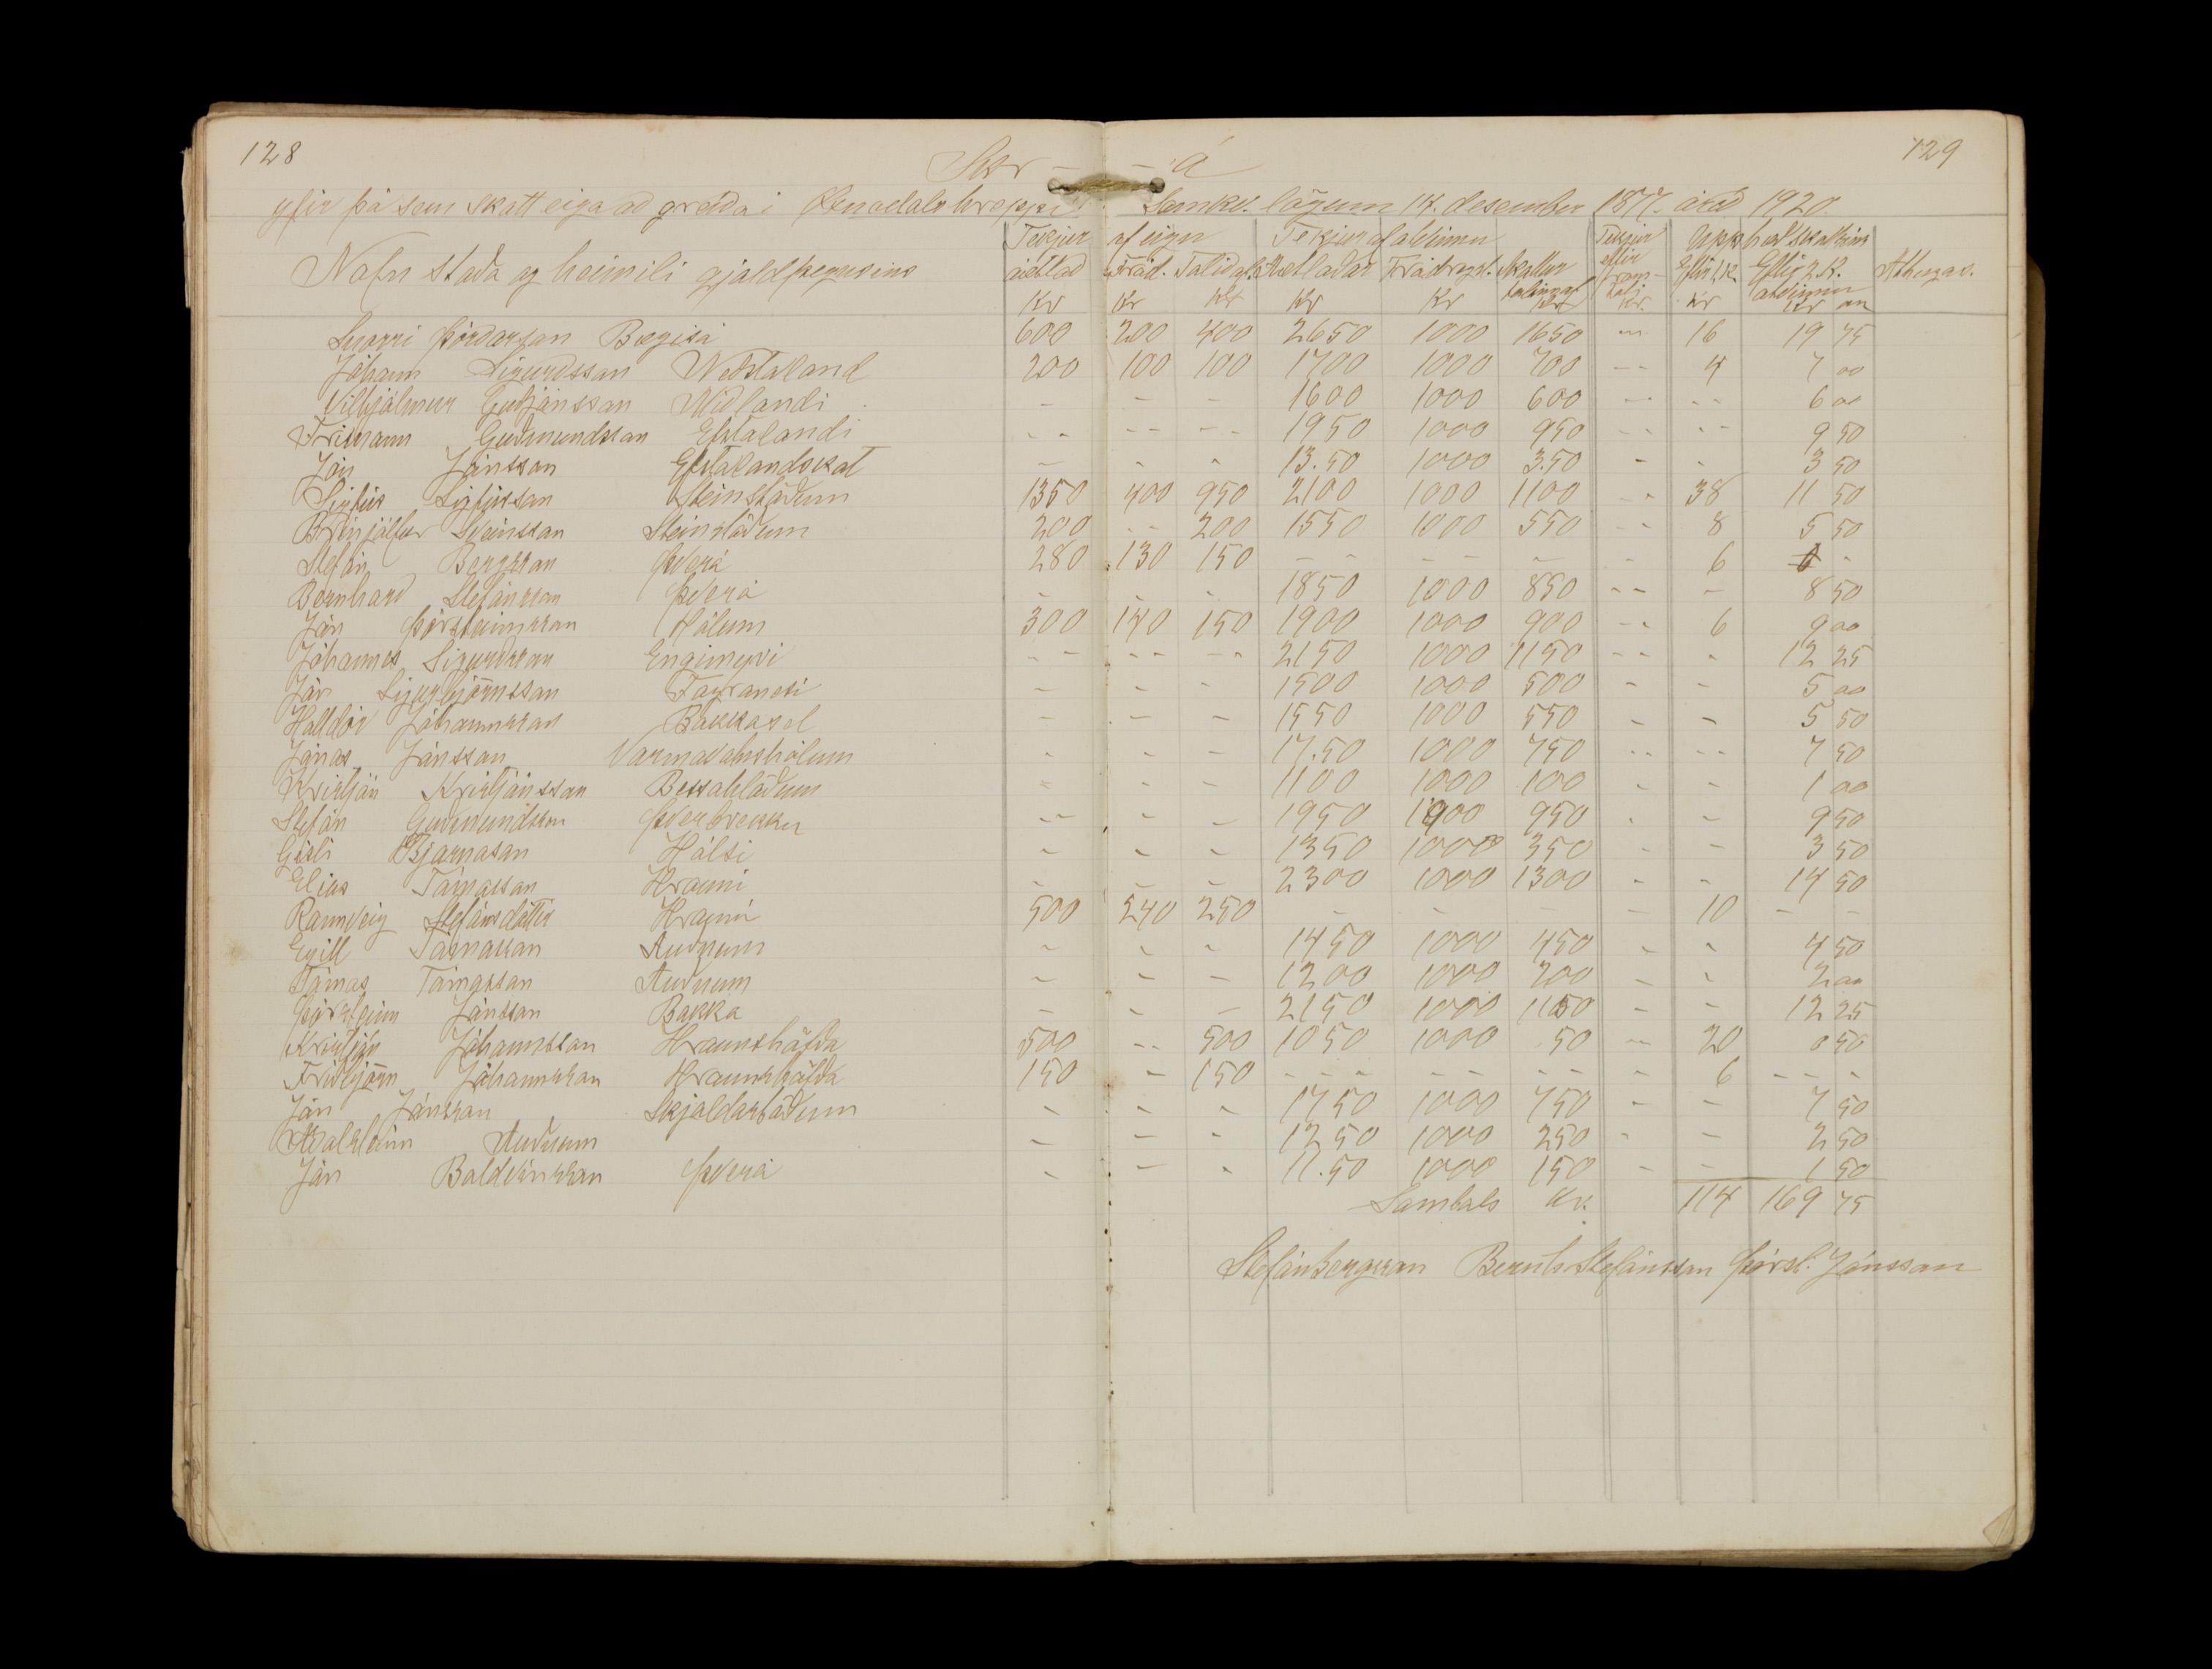 128 129
Skr - - á
yfir þá sem skatt eiga ad greida i Öxnadalshreppi Samkv. lögum 14. desember 1877. árid 1920.
Tekjur af eign Tekjur af atvinnu Tekjur Upphæd skattsins
Nafn stada og heimili gjaldþegnsins áætlad Frád. Talid af. Áætladar Frádregst. Skattur eftir fram- Eftir 1. K. Eftir 2. K. Athugas.
talinn af tali atvinnu
Kr Kr Kr Kr Kr Kr Kr. Kr Kr au
Snorri Þórdarson Bægisá 600 200 400 2650 1000 1650 -- 16 19 75
Jóhann Sigurdsson Nedstaland 200 100 100 1700 1000 700 -- 4 7 00
Vilhjálmur Gudjónsson Midlandi - - - 1600 1000 600 -- -- 6 00
Frimann Gudmundsson Efstalandi -- -- -- 1950 1000 950 -- -- 9 50
Jón Jónsson Efstalandskot - - - 13.50 1000 3.50 - - 3 50
Sigfús Sigfússon Steinstödum 1350 400 950 2100 1000 1100 -- 38 11 50
Brinjólfur Sveinsson Steinstödum 200 -- 200 1550 1000 550 -- 8 5 50
Stefán Bergsson Þverá 280 130 150 -- -- - - 6 -
Bernhard Stefánsson Þverá - - - 1850 1000 850 -- - 8 50
Jón Þorsteinsson Hólum 300 140 150 1900 1000 900 -- 6 9 00
Jóhannes Sigurdsson Engimyri -- -- -- 2150 1000 1150 -- - 12 25
Jón Sigurbjörnsson Fagranesi - - - 1500 1000 500 - - 5 00
Halldór Jóhannsson Bakkasel - - - 1550 1000 550 - - 5 50
Jónas Jónsson Varmavatnshólum - - - 17.50 1000 750 -- -- 7 50
Kristján Kristjánsson Bessahlödum - - - 1100 1000 100 - - 1 00
Stefán Gudmundsson Þverbrekku -- - - 1950 1000 950 - - 9 50
Gísli Bjarnason Hálsi - - - 1350 1000 350 - - 3 50
Elias Tómasson Hrauni - - - 2300 1000 1300 - - 14 50
Rannveig Stefánsdóttir Hrauni 500 240 250 - - - - 10 - -
Egill Tómasson Audnum - - - 1450 1000 450 - - 4 50
Tómas Tómasson Audnum - - - 1200 1000 200 - - 2 00
Þorsteinn Jónsson Bakka - - - 2150 1000 1150 - - 12 25
Kristján Jóhannsson Hraunshöfda 500 -- 500 1050 1000 50 -- 20 0 50
Fridbjörn Jóhannsson Hraunshöfda 150 - 150 -- -- -- - 6 -- -
Jón Jónsson Skjaldarstödum - - - 1750 1000 750 - - 7 50
Adalsteinn Audnum - - - 1250 1000 250 - - 2 50
Jón Baldvinsson Þverá - - - 11.50 1000 150 - - 1 50
Samtals Kr. 114 169 75
Stefán Bergsson Bernh Stefánsson Þorst. Jónsson